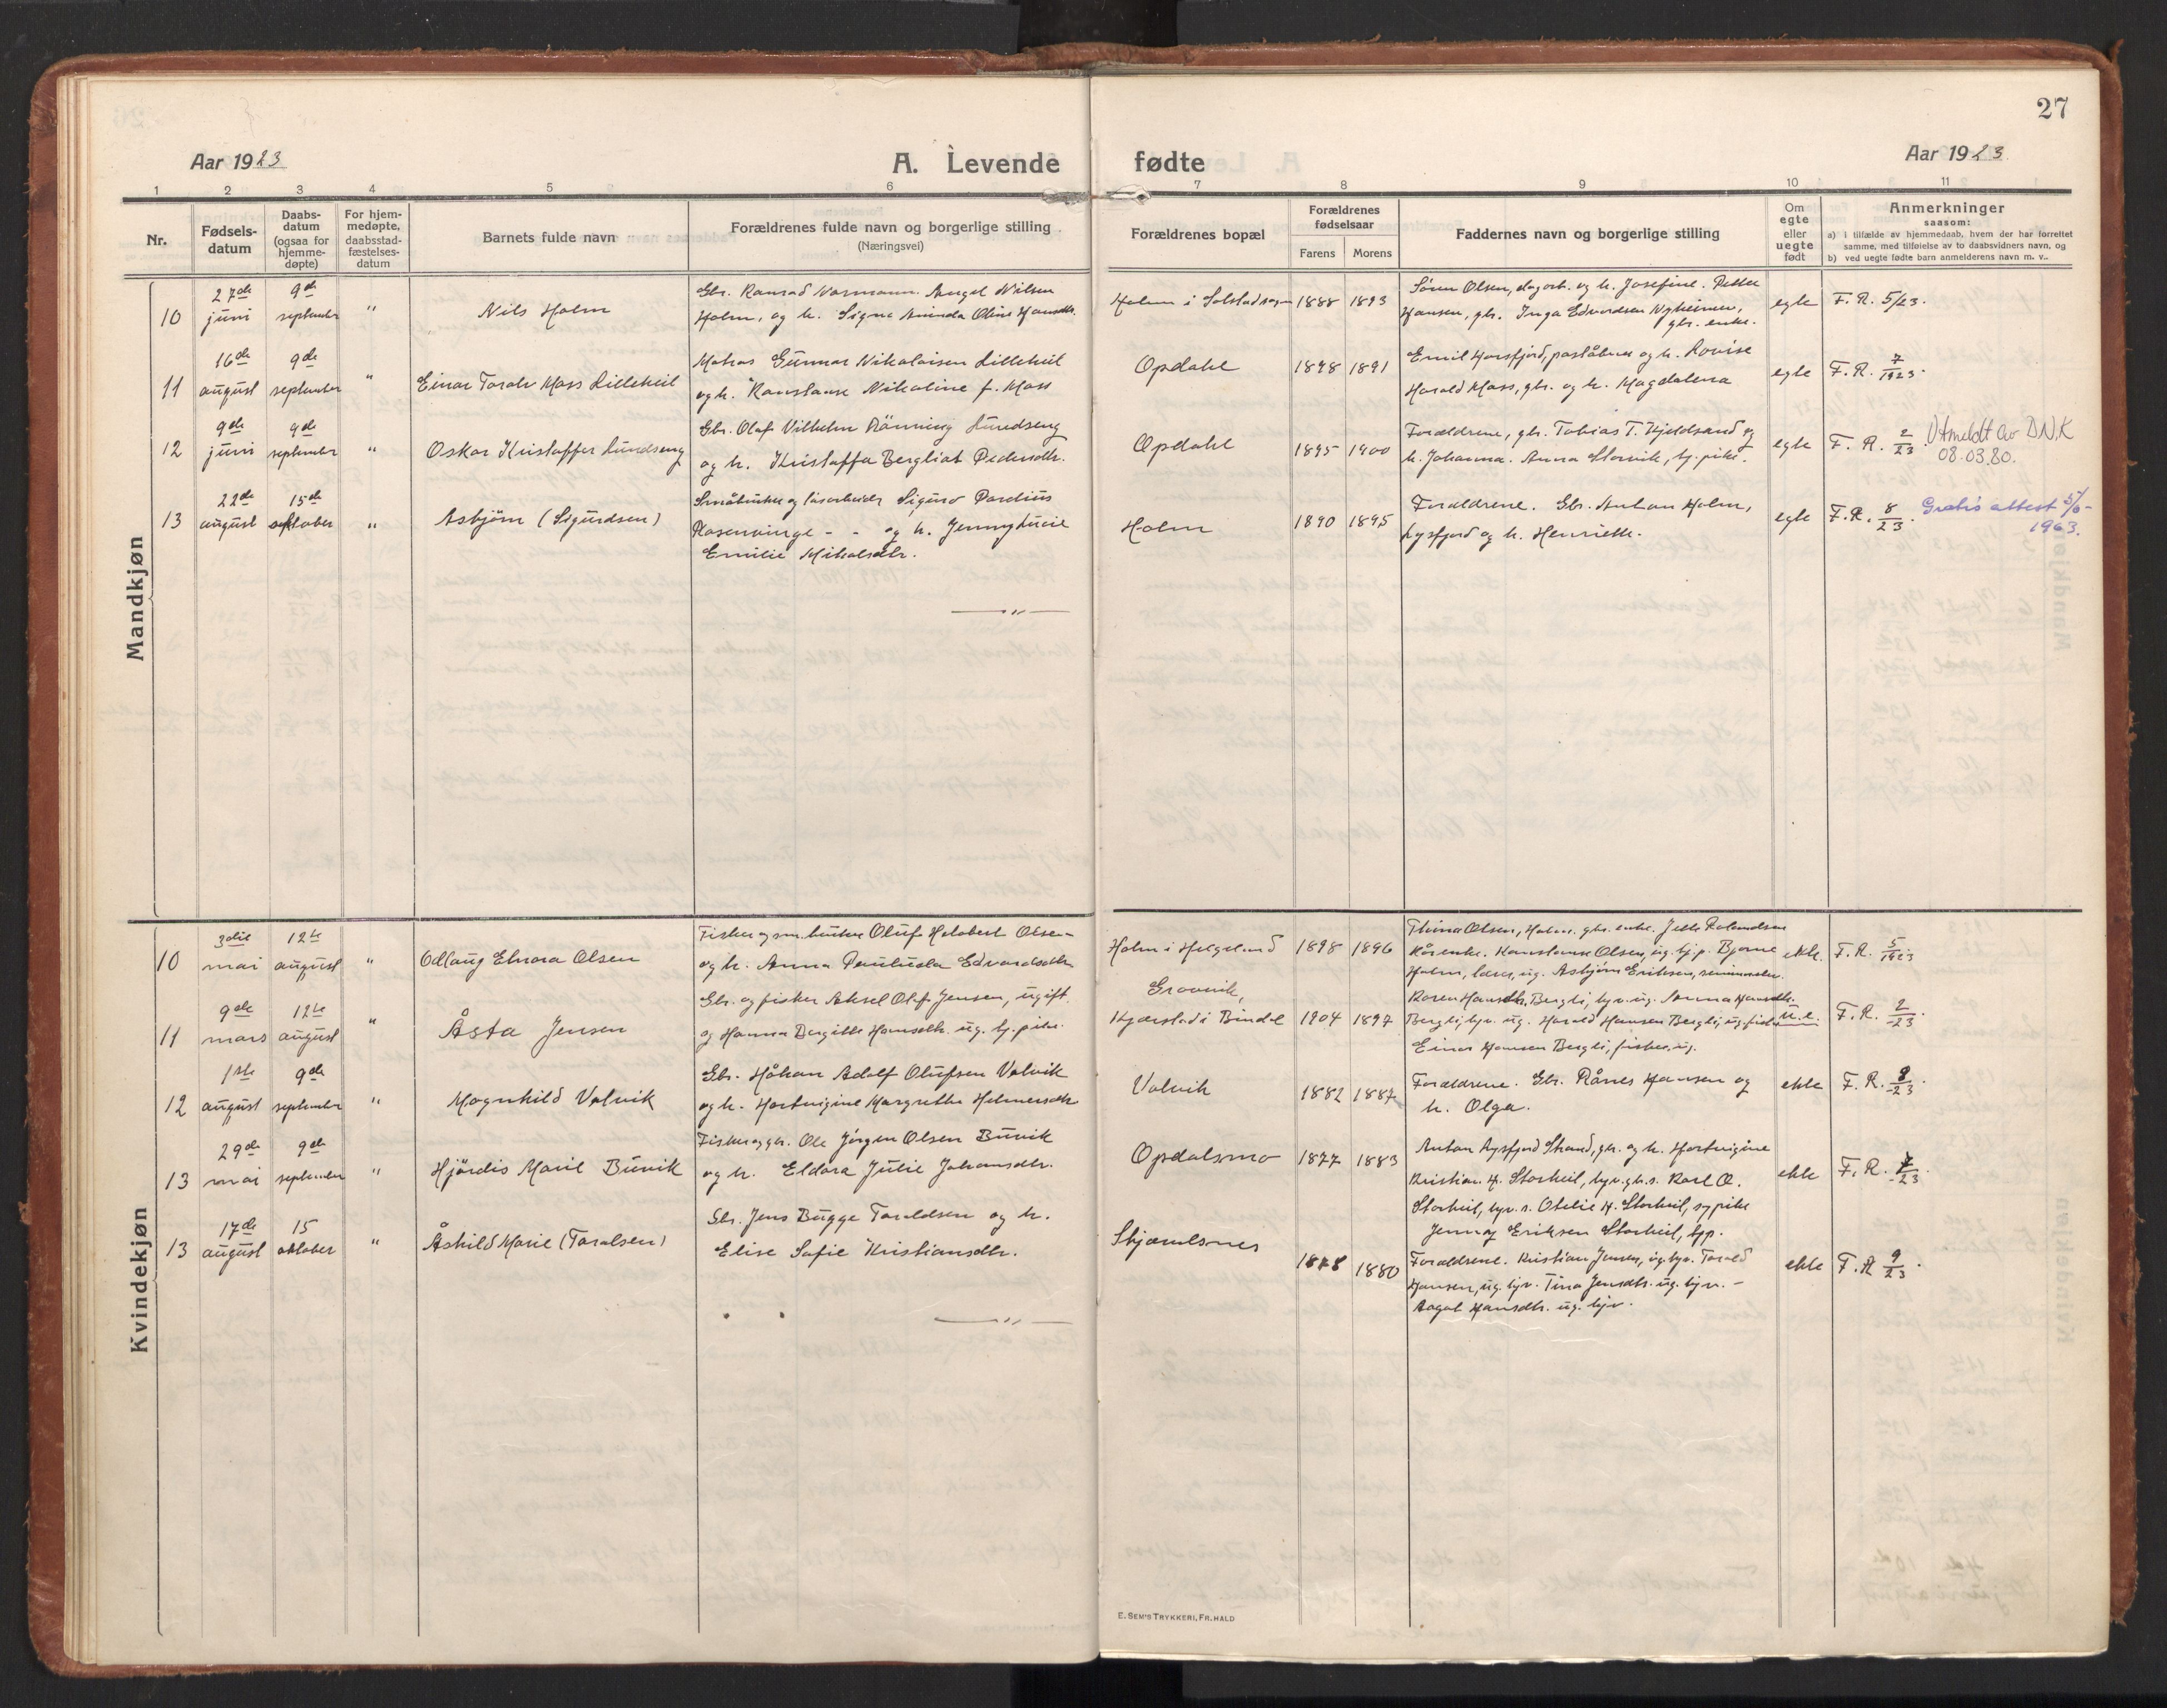 27
Aar 1923
A. Levende fødte
Aar 1923
1 2 3 4 5 6 7 8 9 10 11
Nr.
Fødsels-
datum
Daabs-
datum
(ogsaa for
hjemme-
døpte)
For hjem-
medøpte,
daabsstad-
fæstelses-
datum
Barnets fulde navn
Forældrenes fulde navn og borgerlige stilling
(Næringsvei)
Forældrenes bopæl
Forældrenes
fødselsaar
Farens Morens
Faddernes navn og borgerlige stilling
Om
egte
eller
uegte
født
Anmerkninger
saasom:
a) i tilfælde av hjemmedaab, hvem der har forrettet
samme, med tilføielse av to daabsvidners navn, og
b) ved uegte fødte barn anmelderens navn m. v..
Mandkjøn
10
27de
juni
9de
september
"
Nils Holm
Gbr. Konrad Normann Nilsen
Holm, og h. Signe Oline Hansdtr.
Holm i Solstad sogn
1888 1893
Søren Olsen, dagarb. og h. Josefine. Petter
Hansen, gbr. Inga Edvardsen Nyheimen,
gbr. enke.
egte
F. R. 5/23.
11
16de
august
9de
september
"
Einar Toralv Moss Lilleheil
Matros Gunnar Nikolaisen Lilleheil
og h. Konstanse Nikoline f. Moss
Opdahl
1898 1891
Emil Horsfjord, poståbner og h. Lovise
Harald Moss, gbr. og h. Magdalena
egte
F. R. 7/1923.
12
9de
juni
9de
september
"
Oskar Kristoffer Lundseng
Gbr. Olaf Vilhelm Rönning Lundseng
og h. Kristoffa Bergliot Pedersdtr.
Opdahl
1895 1900
Forældrene, gbr. Tobias T. Kjeldsand og
h. Johanna. Anna Storvik, tj. pike.
egte
F. R. 2/23. Utmeldt av DNK
08.03.80.
13
22de
august
15de
oktober
"
Asbjörn (Sigurdsen)
Småbruker og løsarbeider Sigurd Pardius
Rosenvinge - - og h. Jenny Lucie
Emilie Mikalsdtr.
Holm
1890 1895
Forældrene. Gbr. Anton Holm,
Lysfjord og h. Henriette.
egte
F. R. 8/23. Gratis attest
1963.
Kvindekjøn
10
3die
mai
12te
august
"
Odlaug Elnora Olsen
Fisker og sm.bruker Oluf Helobert Olsen
og h. Anna Paulusa Edvardsdtr.
Holm i Helgeland
1898 1896
Olsen, Holm, gbr. enke.
Kårenke. Konstanse Olsen, ug. tj.p. Bjarne
Holm, lærer, ug. Asbjörn Eriksen, seminarelev.
ekte.
F. R. 5/1923
11
9de
mars
12te
august
"
Åsta Jensen
Gbr. og fisker Aksel Olaf Jensen, ugift.
og Hanna Bergitte Hansdtr. ug. tj. pike.
Grovvik,
Kjærstad i Bindal
1904 1897
Karen Hansdtr. Bergli, tjv. ug. Hansdtr.
Bergli, tjv. ug. Harald Hansen Bergli, ug. fisker
Einar Hansen Bergli, fisker, ug.
u.e.
F. R. 2/23.
12
1ste
august
9de
september
"
Magnhild Valvik
Gbr. Håkon Adolf Olufsen Valvik
og h. Hartvigine Margrethe Helmersdtr.
Valvik
1882 1887
Forældrene. Gbr. Rånes Hansen og
h. Olga.
ekte
F. R. 8/23.
13
29de
mai
9de
september
"
Hjördis Marie Buvik
Fisker og gbr. Ole Jörgen Olsen Buvik
og h. Eldora Julie Johansdtr.
Opdalsmo
1877 1883
Anton Lysfjord Strand, gbr. og h. Hartvigine
Kristian H. Storheil, tjv. gb.s. Karl O.
Storheil, tjv. s. Otelie H. Storheil, sypike
Jenny Eriksen Storheil, tpp.
ekte
F. R.
13
17de
august
15
oktober
"
Åshild Marie (Toralsen)
Gbr. Jens Bugge Toraldsen og h.
Elise Sofie Kristiansdtr.
Skjærelsnes
1880
Forældrene. Kristian Jensen, ug. tjv. Torald
Hansen, ug. tjv. Tina Jensdtr. ug. tjv. -
Aagot Hansdtr. ug. tjv.
ekte
F. R. 9/23.
E. SEM'S TRYKKERI, FR. HALD